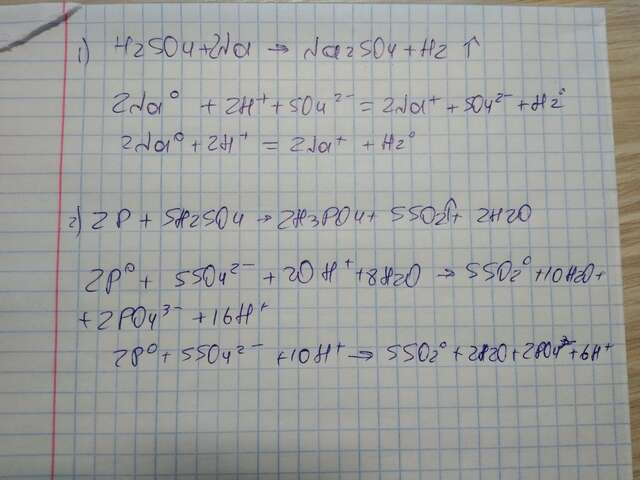 1) H2SO4+2Na → Na2SO4+H2↑
2Na⁰ + 2H⁺+SO4²⁻ = 2Na⁺+SO4²⁻+H2⁰
2Na⁰+2H⁺ = 2Na⁺ +H2⁰
2) 2P+5H2SO4→2H3PO4+5SO2↑+ 2H2O
2P⁰+ 5SO4²⁻+20H⁺+8H2O → 5SO2⁰+10H2O+
+2PO4³⁻ +16H⁺
2P⁰+5SO4²⁻ +10H⁺→5SO2⁰+2H2O+2PO4³⁻+6H⁺